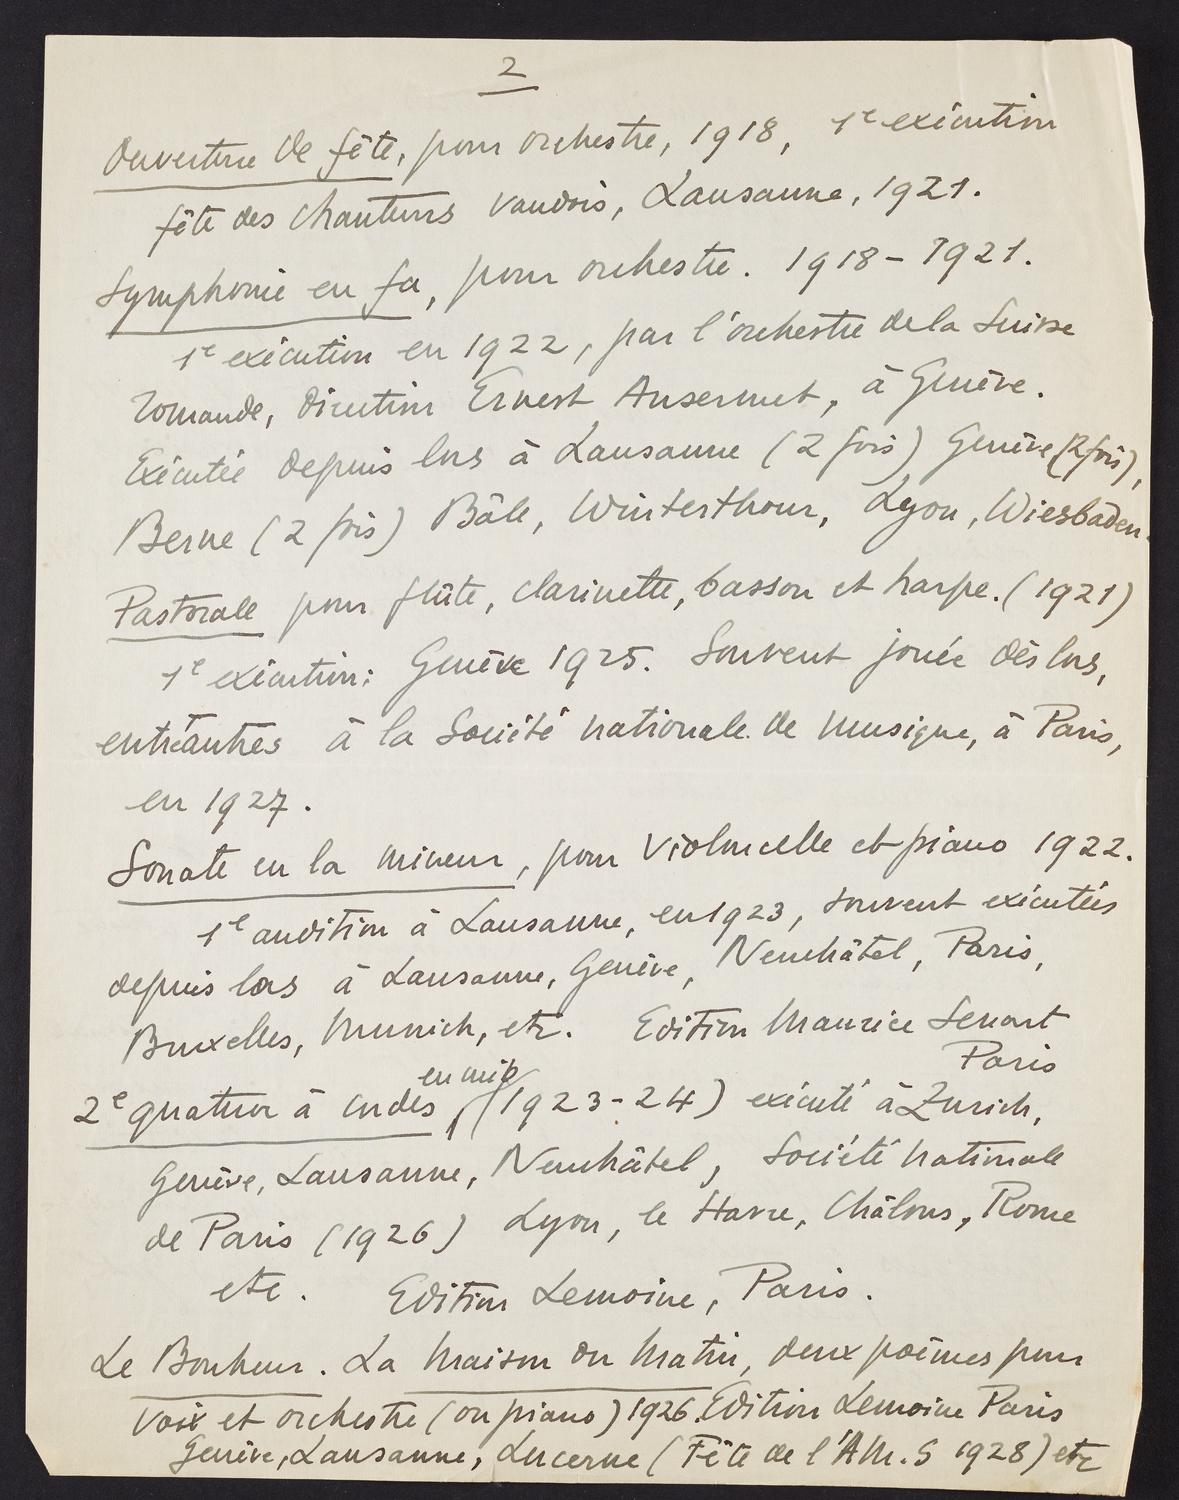 2
Ouverture de fête, pour orchestre, 1918, 1e exécution
fête des chanteurs vaudois, Lausanne, 1921.
Symphonie en fa, pour orchestre. 1918 - 1921.
1e exécution en 1922, par l'orchestre de la Suisse
romande, direction Ernest Ansermet, à Genève.
Exécutée depuis lors à Lausanne (2 fois) Genève (2 fois),
Berne (2 fois) Bâle, Winterthour, Lyon, Wiesbaden.
Pastorale pour flûte, clarinette, basson et harpe. (1921)
1e exécution: Genève 1925. Souvent jouée dès lors,
entre autres à la Société nationale de musique, à Paris,
en 1927.
Sonate en la mineur, pour violoncelle et piano 1922.
1e audition à Lausanne, en 1923, souvent exécutées
depuis lors à Lausanne, Genève, Neuchâtel, Paris,
Bruxelles, Munich, etc. Edition Maurice Senart
Paris
en mi♭
2e quatuor à cordes (1923-24) exécuté à Zurich,
Genève, Lausanne, Neuchâtel, Société nationale
de Paris (1926) Lyon, le Havre, Châlons, Rome
etc. Edition Lemoine, Paris.
Le Bonheur. La Maison du Matin, deux poèmes pour
voix et orchestre (ou piano) 1926. Edition Lemoine Paris
Genève, Lausanne, Lucerne (Fête de l'A.M.S 1928) etc